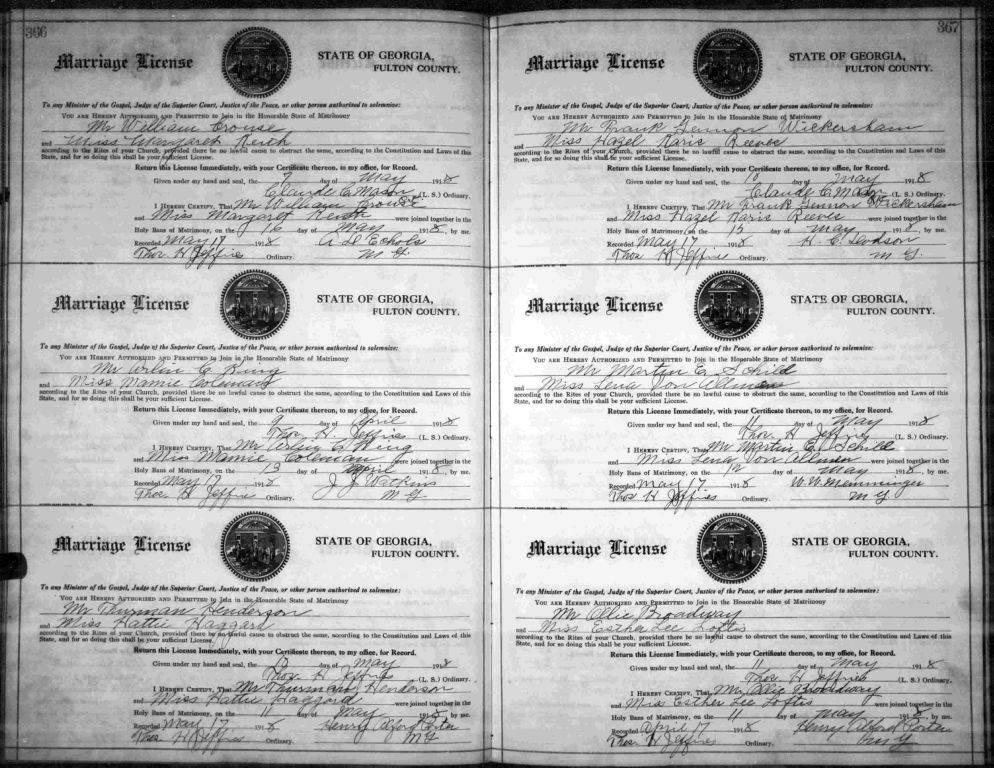 366
Marriage License
STATE OF GEORGIA,
FULTON COUNTY.
To any Minister of the Gospel, Judge of the Superior Court, Justice of the Peace, or other person authorized to solemnize:
YOU ARE HEREBY AUTHORIZED AND PERMITTED to Join in the Honorable State of Matrimony
Mr William Crouse
and Miss Margaret Keith
according to the Rites of your Church, provided there be no lawful cause to obstruct the same, according to the Constitution and Laws of this
State, and for so doing this shall be your sufficient License.
Return this License Immediately, with your Certificate thereon, to my office, for Record.
Given under my hand and seal, the 7 day of May 1918
Claude C. Mason (L. S.) Ordinary.
I HEREBY CERTIFY, That Mr William Crouse
and Miss Margaret Keith were joined together in the
Holy Bans of Matrimony, on the 16 day of May 1918, by me.
Recorded May 17 1918 A D Echols
Thos. H Jeffries Ordinary. M G
Marriage License
STATE OF GEORGIA,
FULTON COUNTY.
To any Minister of the Gospel, Judge of the Superior Court, Justice of the Peace, or other person authorized to solemnize:
YOU ARE HEREBY AUTHORIZED AND PERMITTED to Join in the Honorable State of Matrimony
Mr C. King
and Miss Mamie Coleman
according to the Rites of your Church, provided there be no lawful cause to obstruct the same, according to the Constitution and Laws of this
State, and for so doing this shall be your sufficient License.
Return this License Immediately, with your Certificate thereon, to my office, for Record.
Given under my hand and seal, the 9 day of April 1918
Thos. H. Jeffries (L. S.) Ordinary.
I HEREBY CERTIFY, That Mr C. King
and Miss Mamie Coleman were joined together in the
Holy Bans of Matrimony, on the 13 day of April 1918, by me.
Recorded May 17 1918 J J Watkins
Thos H Jeffries Ordinary. M G
Marriage License
STATE OF GEORGIA,
FULTON COUNTY.
To any Minister of the Gospel, Judge of the Superior Court, Justice of the Peace, or other person authorized to solemnize:
YOU ARE HEREBY AUTHORIZED AND PERMITTED to Join in the Honorable State of Matrimony
Mr Thurman Henderson
and Miss Hattie Haggard
according to the Rites of your Church, provided there be no lawful cause to obstruct the same, according to the Constitution and Laws of this
State, and for so doing this shall be your sufficient License.
Return this License Immediately, with your Certificate thereon, to my office, for Record.
Given under my hand and seal, the 10 day of May 1918
Thos. H Jeffries (L. S.) Ordinary.
I HEREBY CERTIFY, That Mr Thurman Henderson
and Miss Hattie Haggard were joined together in the
Holy Bans of Matrimony, on the 11 day of May 1918, by me.
Recorded May 17 1918 Henry Alford Porter
Thos H Jeffries Ordinary. M G
367
Marriage License
STATE OF GEORGIA,
FULTON COUNTY.
To any Minister of the Gospel, Judge of the Superior Court, Justice of the Peace, or other person authorized to solemnize:
YOU ARE HEREBY AUTHORIZED AND PERMITTED to Join in the Honorable State of Matrimony
Mr Frank Lennon Wickersham
and Miss Hazel Karis Reeves
according to the Rites of your Church, provided there be no lawful cause to obstruct the same, according to the Constitution and Laws of this
State, and for so doing this shall be your sufficient License.
Return this License Immediately, with your Certificate thereon, to my office, for Record.
Given under my hand and seal, the 10 day of May 1918
Claude C Mason (L. S.) Ordinary.
I HEREBY CERTIFY, That Mr Frank Lennon Wickersham
and Miss Hazel Karis Reeves were joined together in the
Holy Bans of Matrimony, on the 15 day of May 1918, by me.
Recorded May 17 1918 H. C.
Thos H Jeffries Ordinary. M G.
Marriage License
STATE OF GEORGIA,
FULTON COUNTY.
To any Minister of the Gospel, Judge of the Superior Court, Justice of the Peace, or other person authorized to solemnize:
YOU ARE HEREBY AUTHORIZED AND PERMITTED to Join in the Honorable State of Matrimony
Mr Martin E. Schild
and Miss Lena Von Allmen
according to the Rites of your Church, provided there be no lawful cause to obstruct the same, according to the Constitution and Laws of this
State, and for so doing this shall be your sufficient License.
Return this License Immediately, with your Certificate thereon, to my office, for Record.
Given under my hand and seal, the 11 day of May 1918
Thos. H Jeffries (L. S.) Ordinary.
I HEREBY CERTIFY, That Mr Martin E. Schild
and Miss Lena Von Allmen were joined together in the
Holy Bans of Matrimony, on the 12 day of May 1918, by me.
Recorded May 17 1918 W. W. Memminger
Thos H Jeffries Ordinary. M G.
Marriage License
STATE OF GEORGIA,
FULTON COUNTY.
To any Minister of the Gospel, Judge of the Superior Court, Justice of the Peace, or other person authorized to solemnize:
YOU ARE HEREBY AUTHORIZED AND PERMITTED to Join in the Honorable State of Matrimony
Mr Ollie Broadway
and Miss Esther Lee Loftis
according to the Rites of your Church, provided there be no lawful cause to obstruct the same, according to the Constitution and Laws of this
State, and for so doing this shall be your sufficient License.
Return this License Immediately, with your Certificate thereon, to my office, for Record.
Given under my hand and seal, the 11 day of May 1918
Thos. H Jeffries (L. S.) Ordinary.
I HEREBY CERTIFY, That Mr Ollie Broadway
and Miss Esther Lee Loftis were joined together in the
Holy Bans of Matrimony, on the 11 day of May 1918, by me.
Recorded April 17 1918 Henry Alford Porter
Thos H Jeffries Ordinary. M G